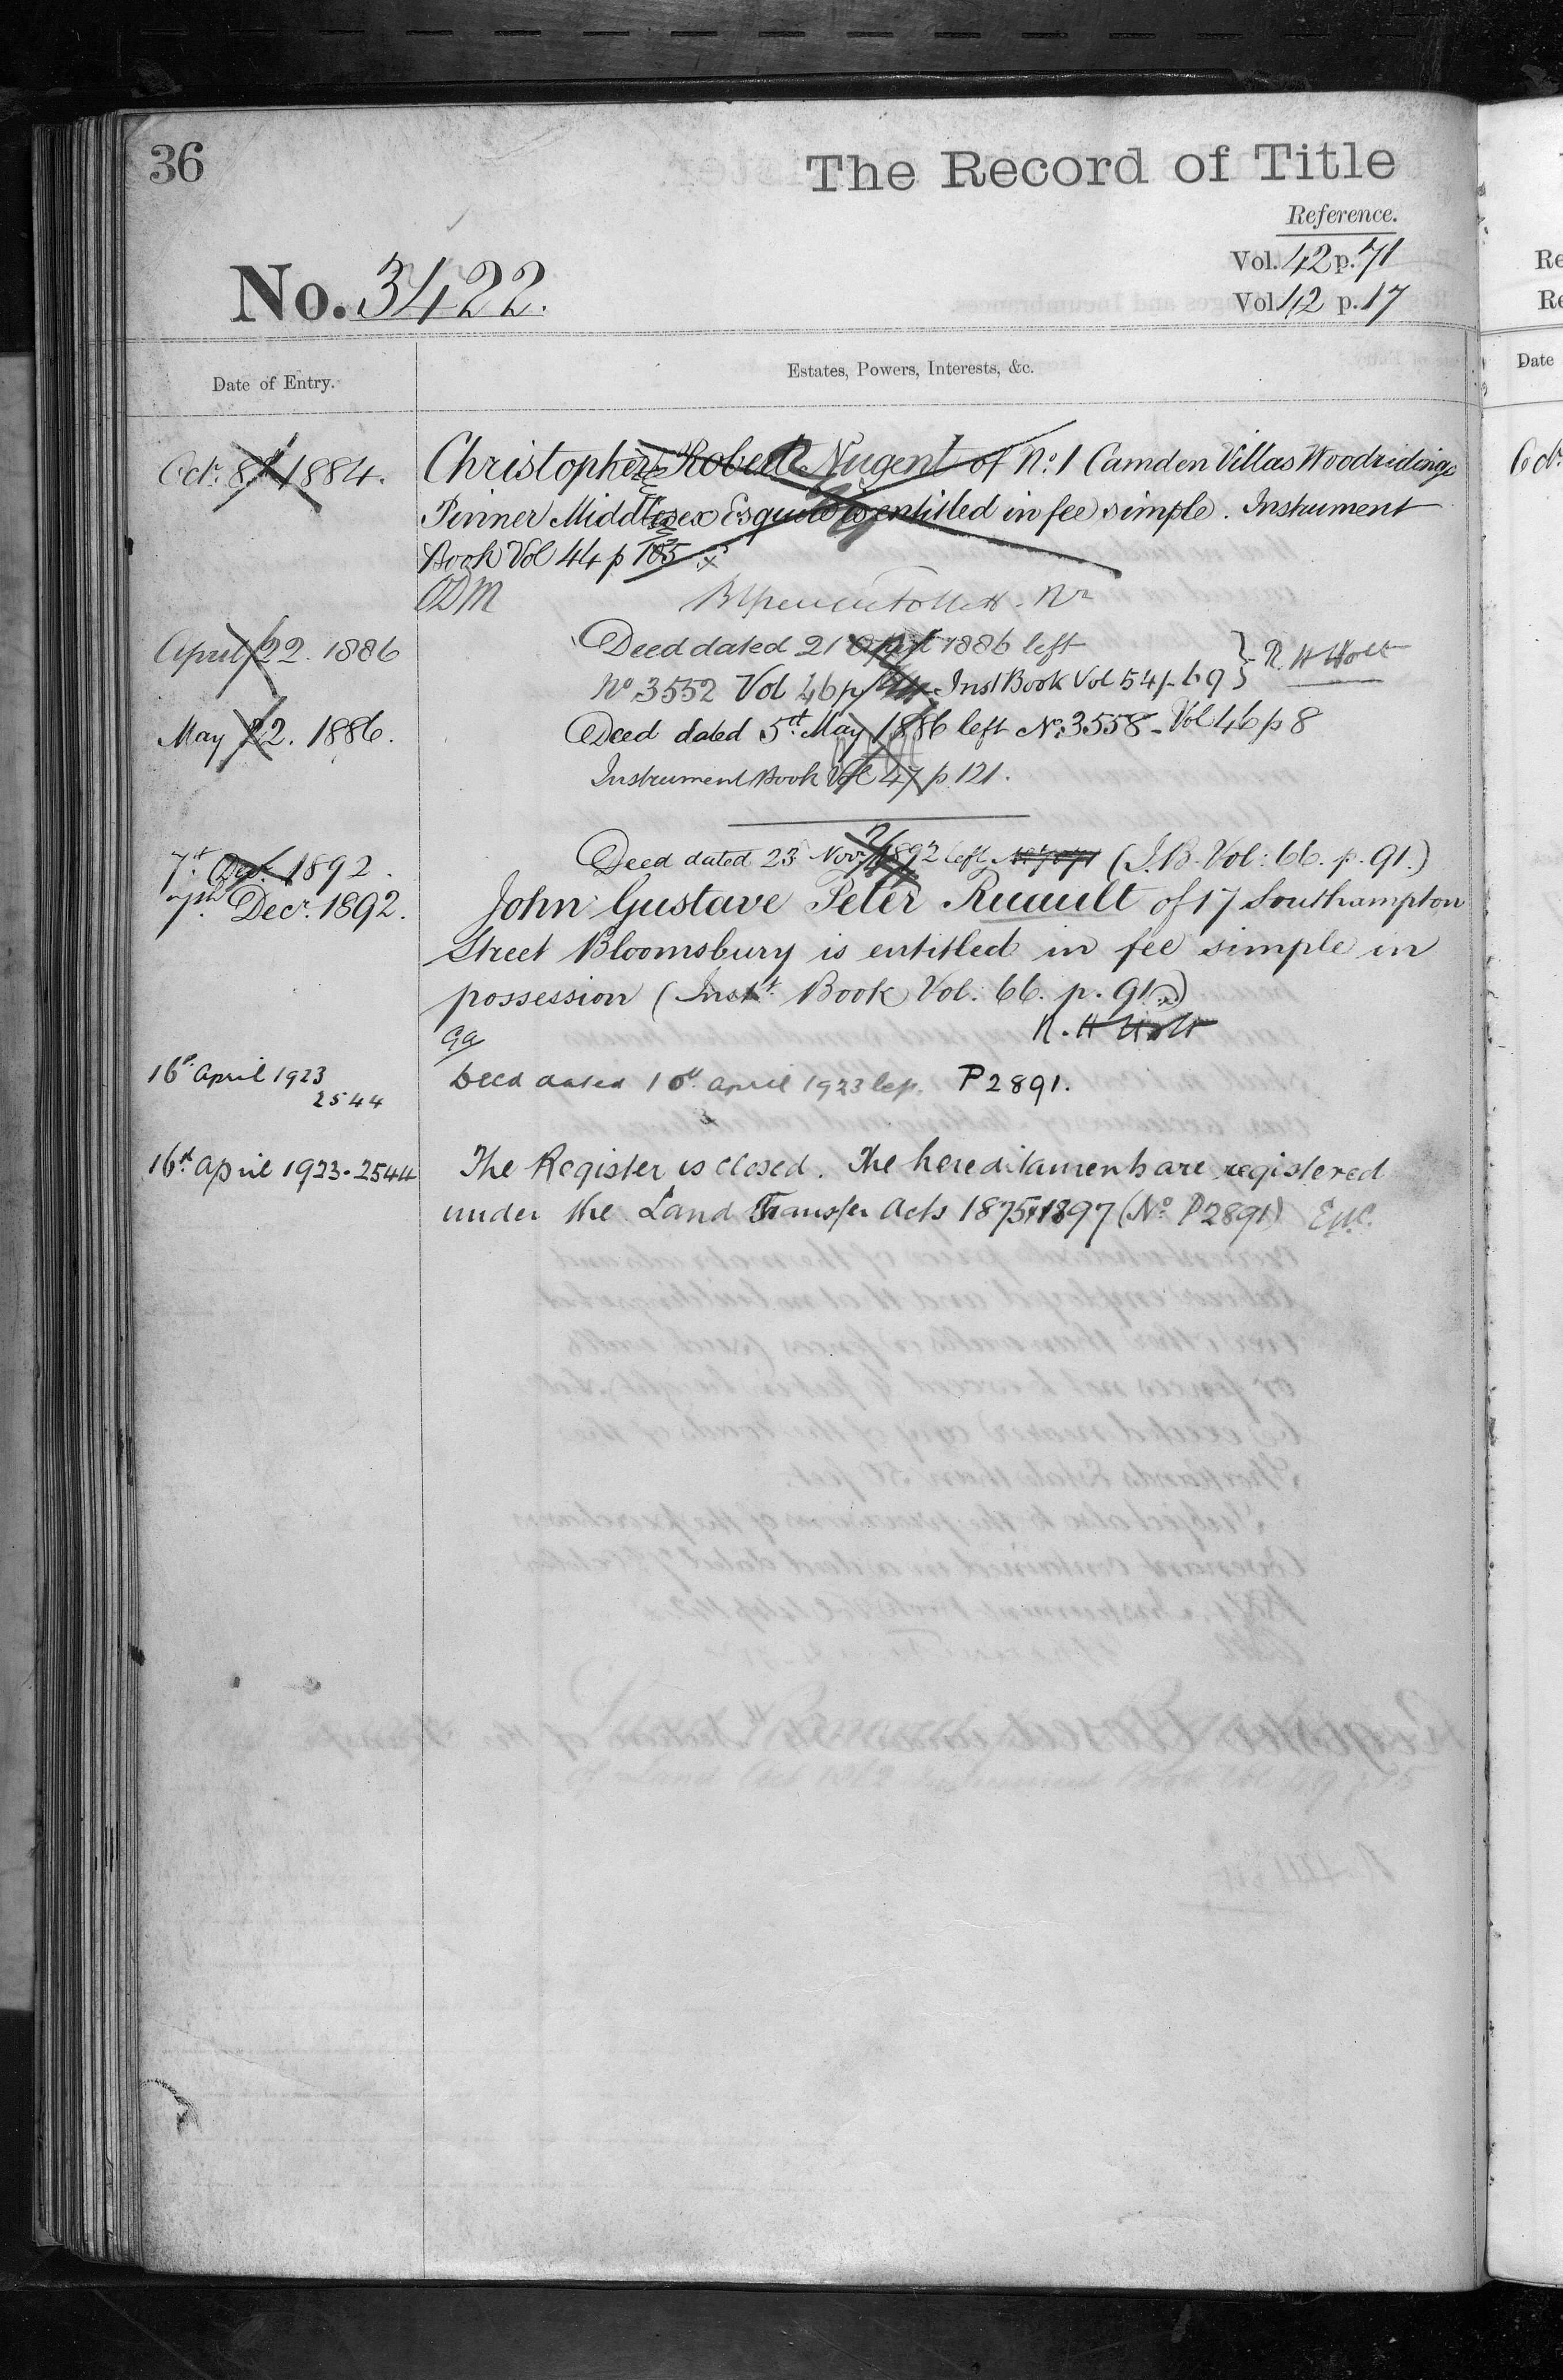 36
The Record of Title
Reference.
Vol. 42 p. 71
Vol. 42 p. 17
No. 3422.
Date of Entry.
Estates, Powers, Interests, &c.
Octr. 8th 1884.
Christopher Robert Nugent of No. 1 Camden Villas Woodridings
Pinner Middlesex Esquire is entitled in fee simple. Instrument
Book Vol 44 p 185
ODM
April 22. 1886
Deed dated 21 April 1886 left
No 3552 Vol 46 p Inst Book Vol 54 p. 69 } R. H Holt
May 22. 1886.
Deed dated 5th May 1886 left No. 3558 - Vol 46 p 8
Instrument Book Vol 47 p. 121.
7th Dec. 1892.
Deed dated 23 Novr. 1892 left (I.B. Vol: 66. p. 91.)
7th Decr. 1892.
John Gustave Peter Ruault of 17 Southampton
Street Bloomsbury is entitled in fee simple in
possession (Inst.t Book Vol: 66. p. 91.)
R. H Holt
16th April 1923
2544
Deed dated 10th April 1923 left. P2891.
16th April 1923 - 2544
The Register is closed. The hereditaments are registered
under the Land Transfer Acts 1875 & 1897 (No. P2891)
Re
Re
Date
Octr